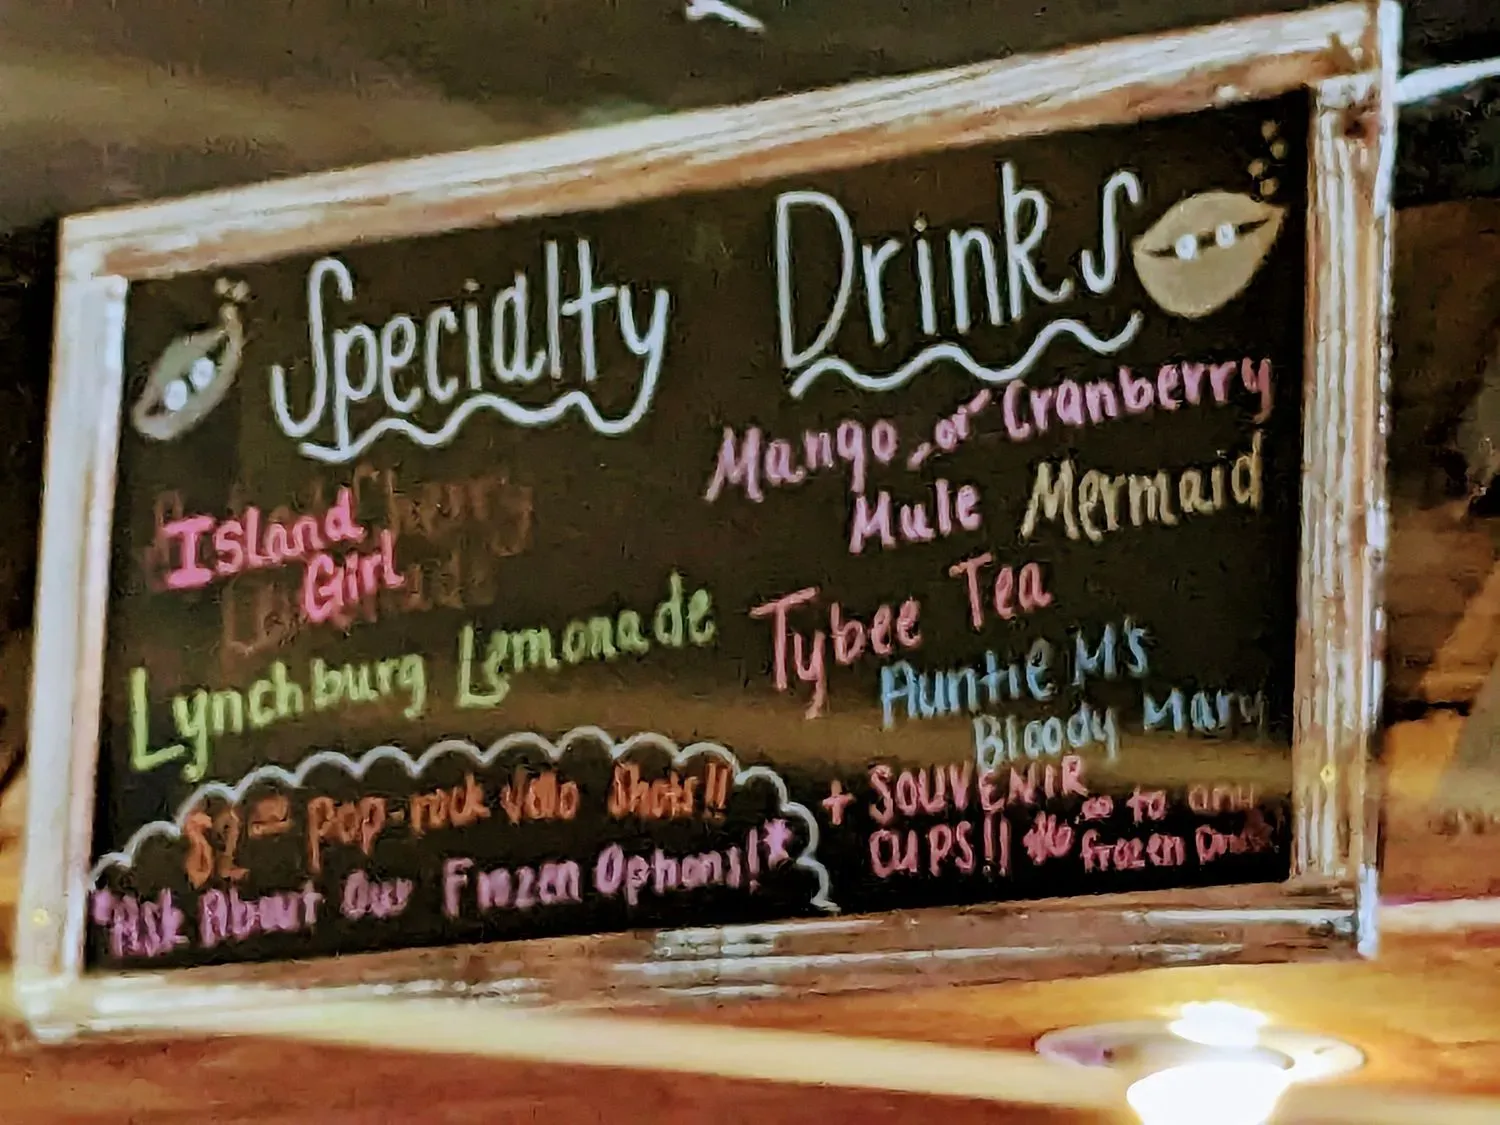 Specialty Drinks
Island
Girl
Lynchburg Lemonade
$2.00 pop-rock Jello Shots!!
*Ask About Our Frozen Options!!*
Mango or Cranberry
Mule
Mermaid
Tybee Tea
Auntie M's
Bloody Mary
+ SOUVENIR
CUPS!!
to any
frozen Drink